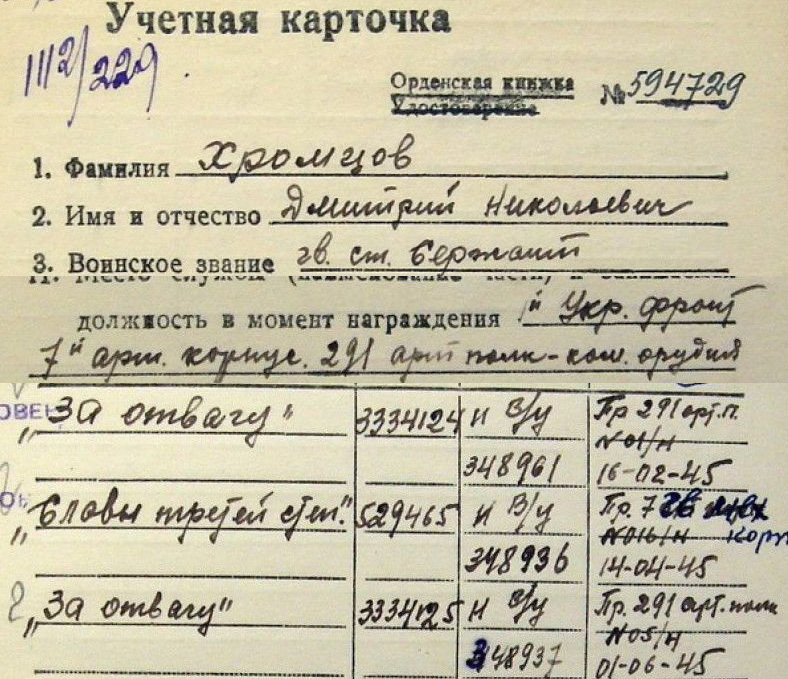 Учетная карточка
1112/229
Орденская книжка
Удостоверение
№ 594729
1. Фамилия Хромцов
2. Имя и отчество Дмитрий Николаевич
3. Воинское звание гв. ст. Сержант
должность в момент награждения 1й Укр. фронт
7й арт. корпус. 291 арт полк-ком. орудия
„За отвагу" 3334124 н в/у Пр 291 арт.п.
№01/н
348961 16-02-45
„Славы третей степ." 529465 н в/у Пр. 7 гв мех корп
№016/н
348936 14-04-45
„За отвагу" 3334125 н в/у Пр. 291 арт. полк
№05/н
348937 01-06-45